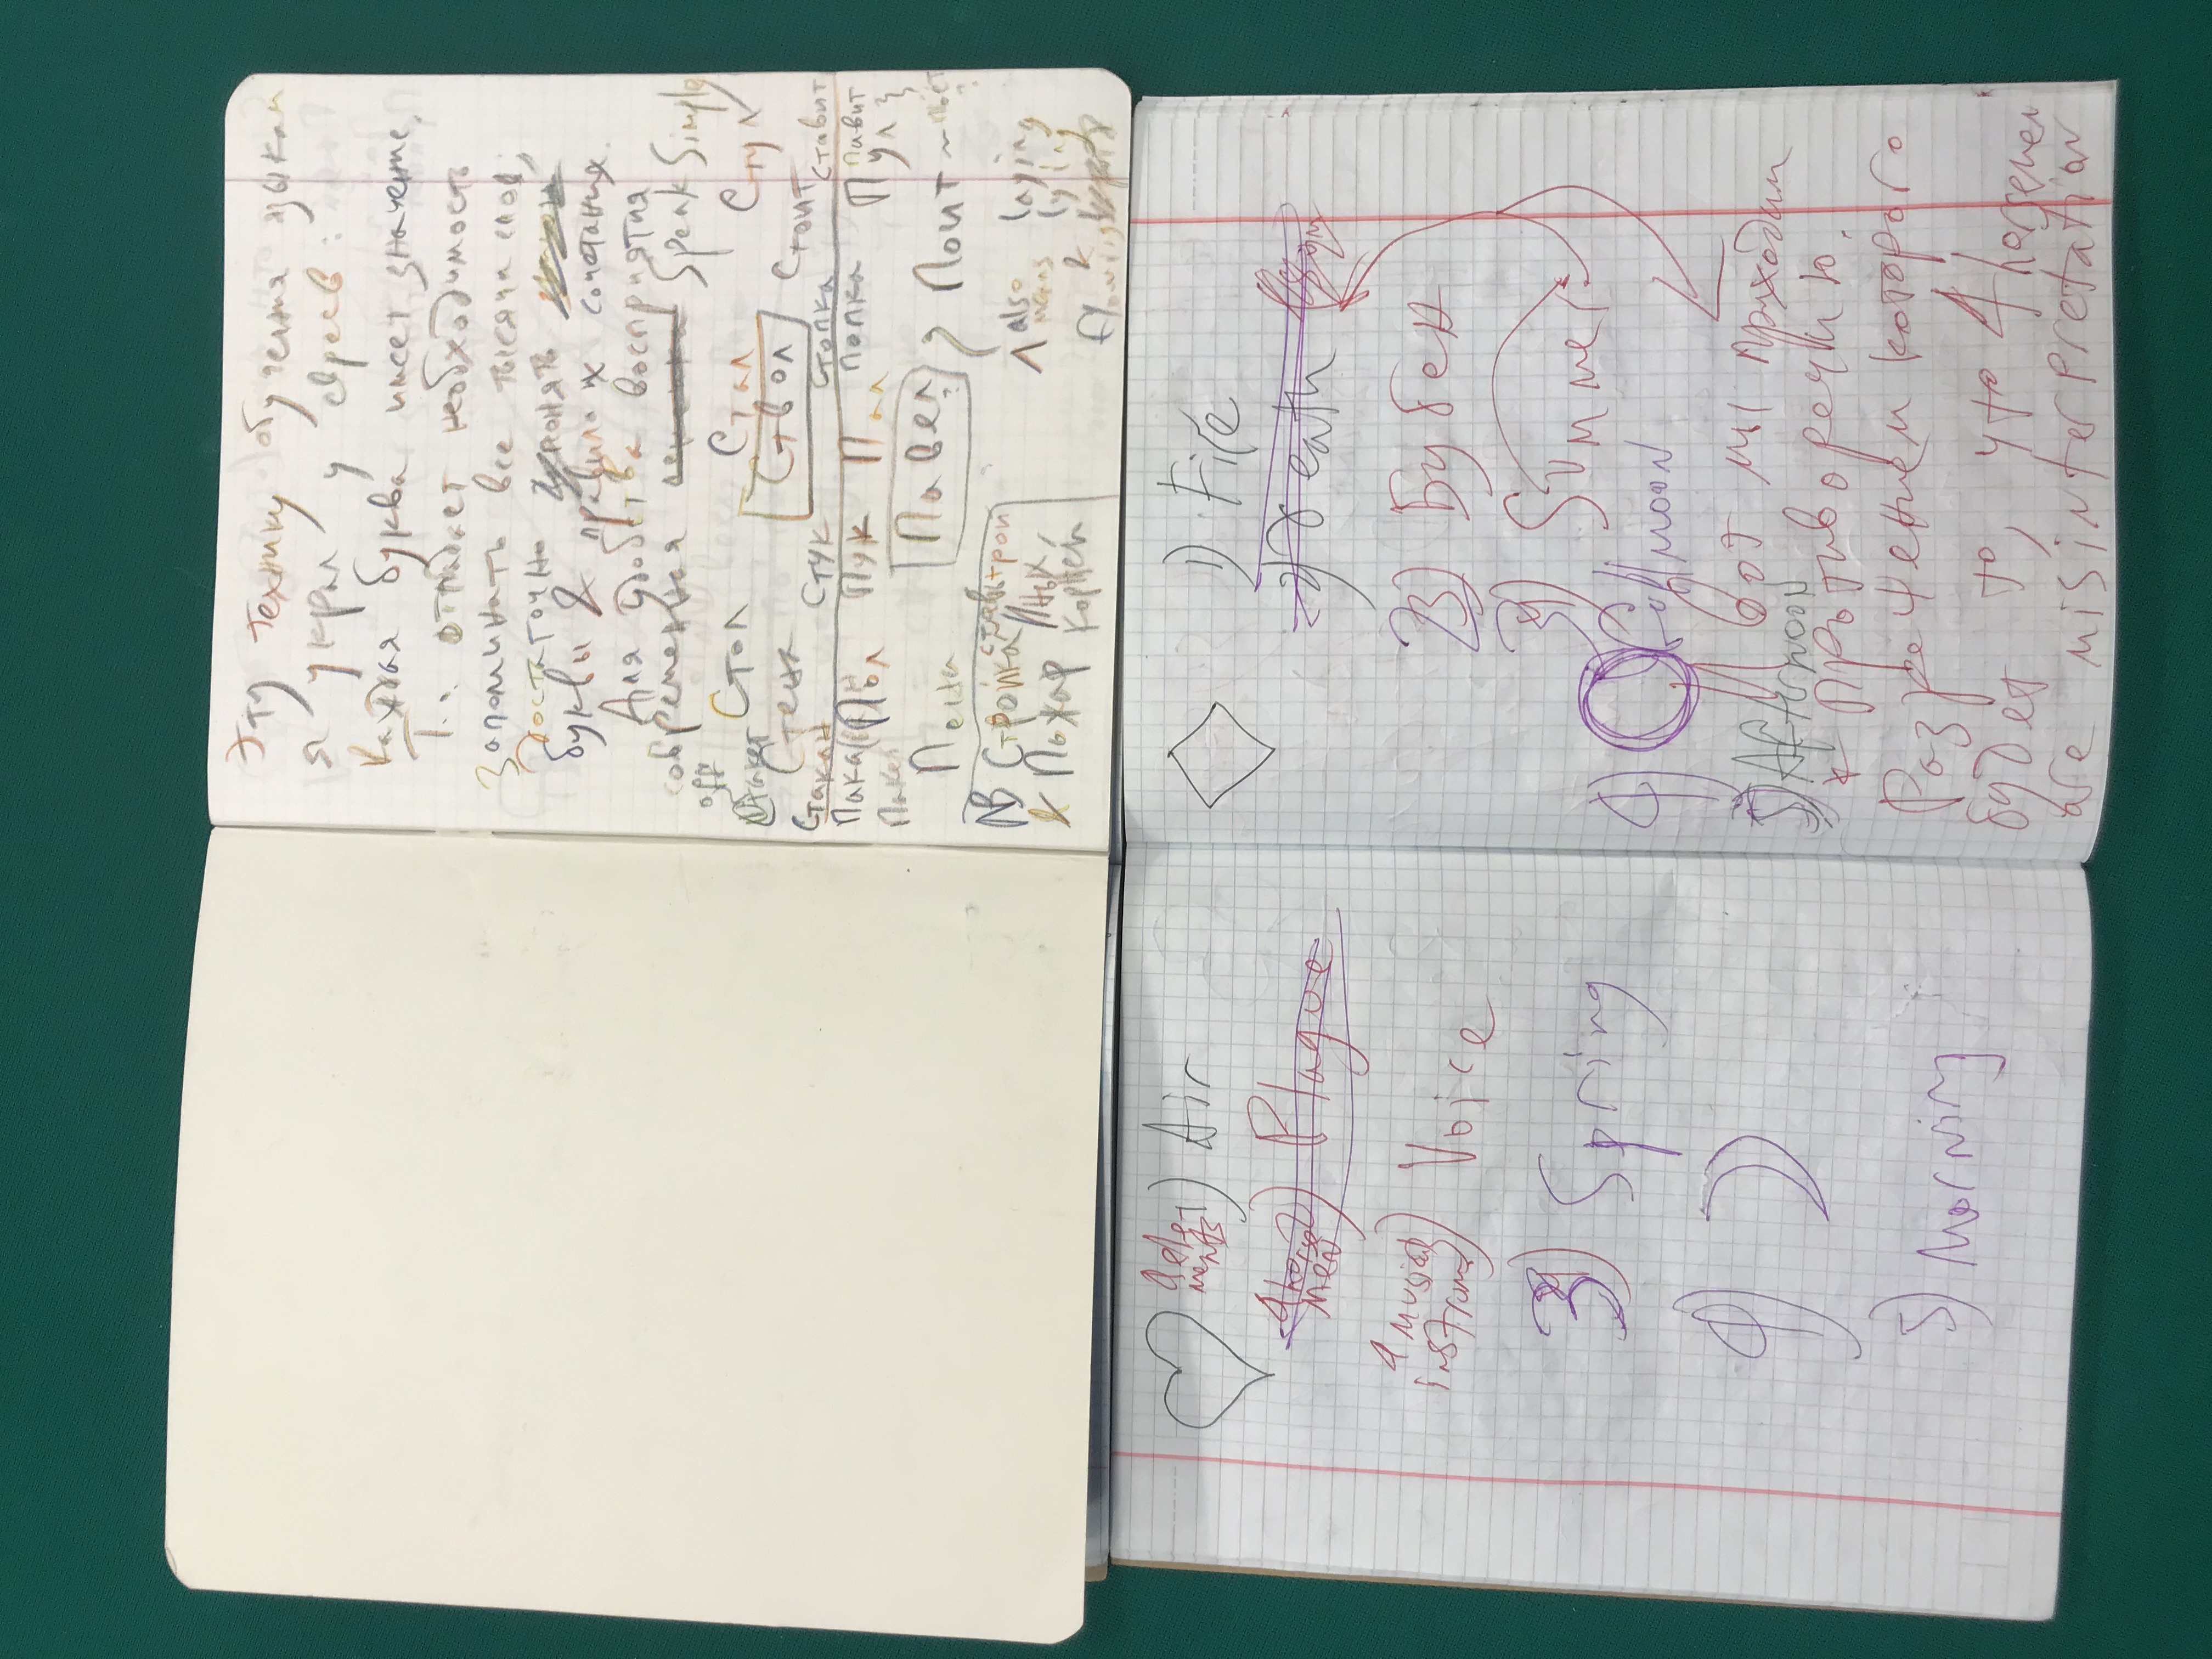 Эту технику обучения языкам
я украл у евреев:
Каждая буква имеет значение.
Т.. отпадает необходимость
запоминать все тысячи слов,
достаточно понять
буквы & правила их сочетания.
Для удобства восприятия
современная Speak Simple
off
Стакет Стол Стал Стул
Стена Ствол Стоит
Стакан Стук Стопка ставит
Пака Пол Пук Пал попка Павит
Пакет Пул
Пена Павел ? Поит ~ поёт ?
NB Стройка
& Пожар ных корней
Л also means laying
lying
& flowing
4 elements) Air
4 horsemen) Plague
4 musical instrum) Voice
3) Spring
4)
5) Morning
1) Fire
2) Death
2) Бубен
3) Summer
4) Full moon
5) Afternoon
И вот мы приходим
к противоречию.
Разрешением которого
будет то, что 4 horsemen
are misinterpretation